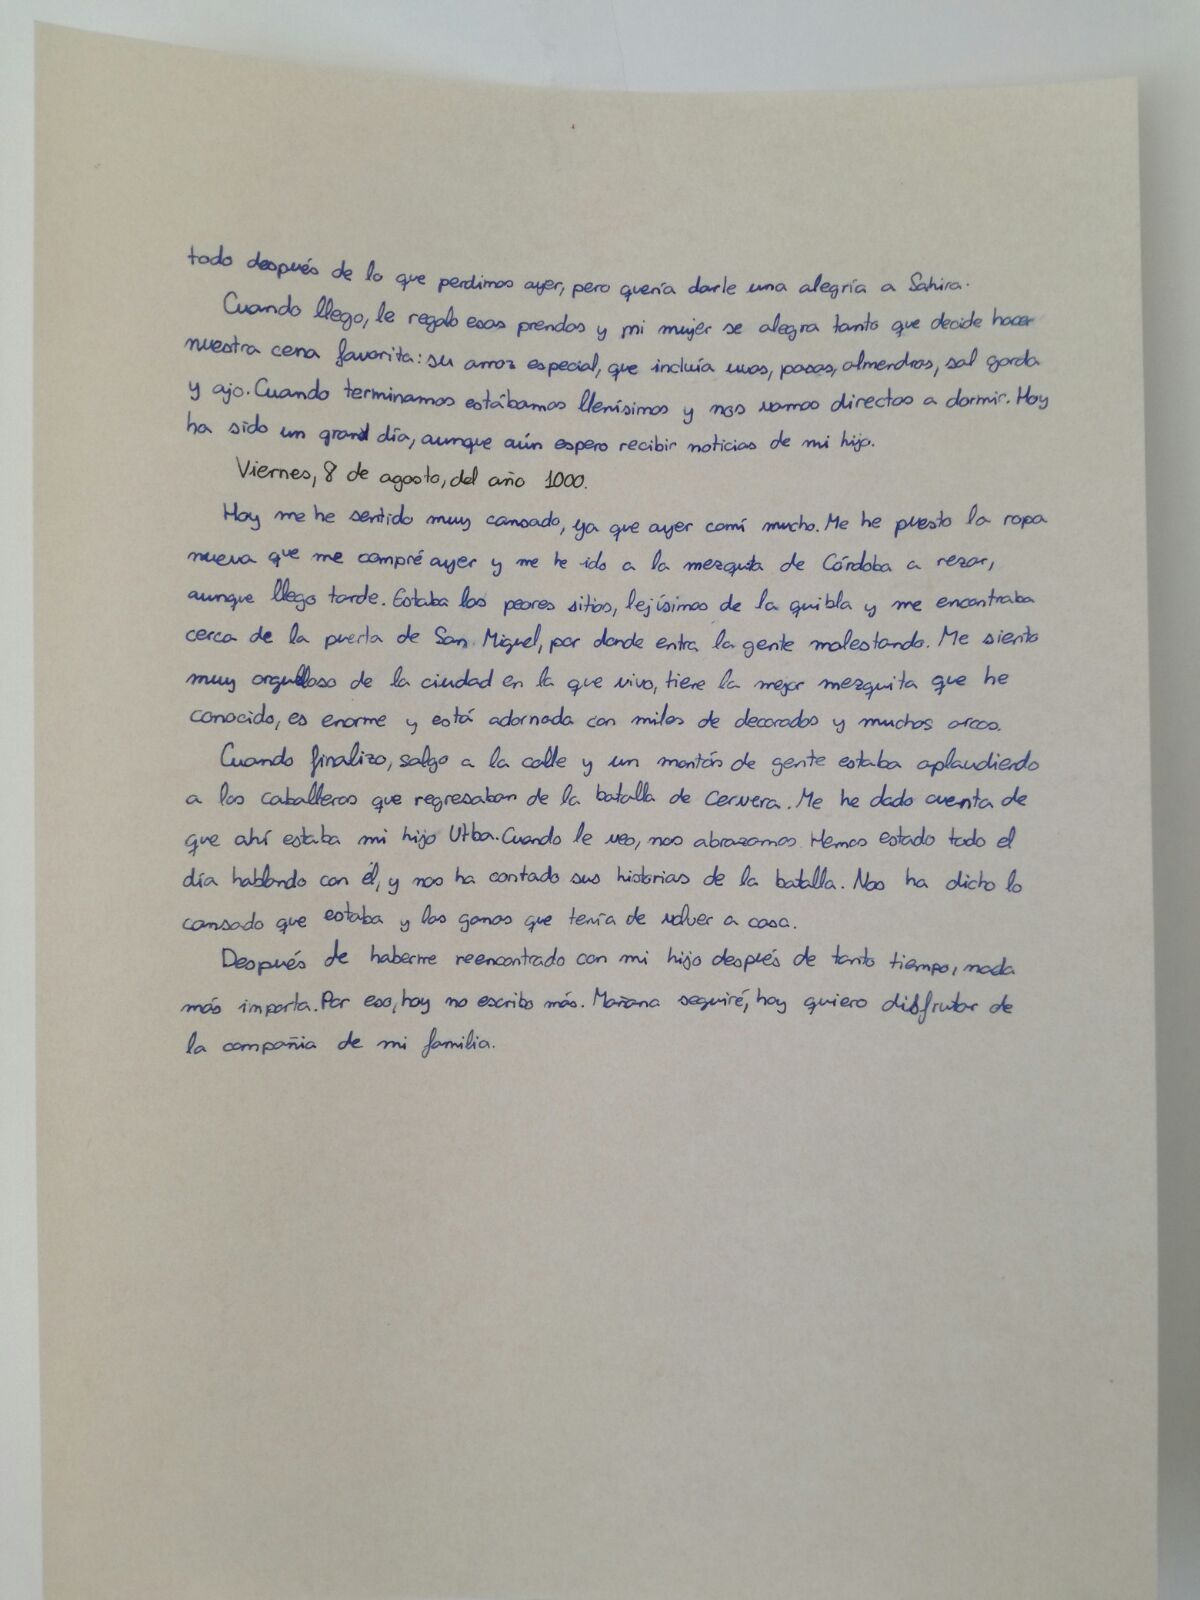 todo después de lo que perdimos ayer, pero quería darle una alegría a Sahira.
Cuando llego, le regalo esas prendas y mi mujer se alegra tanto que decide hacer
nuestra cena favorita: su arroz especial, que incluía uvas, pasas, almendras, sal gorda
y ajo. Cuando terminamos estábamos llenísimos y nos vamos directos a dormir. Hoy
ha sido un grand día, aunque aún espero recibir noticias de mi hijo.
Viernes, 8 de agosto, del año 1000.
Hoy me he sentido muy cansado, ya que ayer comí mucho. Me he puesto la ropa
nueva que me compré ayer y me he ido a la mezquita de Córdoba a rezar,
aunque llego tarde. Estaba los peores sitios, lejísimos de la quibla y me encontraba
cerca de la puerta de San Miguel, por donde entra la gente molestando. Me siento
muy orgulloso de la ciudad en la que vivo, tiene la mejor mezquita que he
conocido, es enorme y está adornada con miles de decorados y muchos arcos.
Cuando finalizo, salgo a la calle y un montón de gente estaba aplaudiendo
a los caballeros que regresaban de la batalla de Cervera. Me he dado cuenta de
que ahí estaba mi hijo Utba. Cuando le veo, nos abrazamos. Hemos estado todo el
día hablando con él, y nos ha contado sus historias de la batalla. Nos ha dicho lo
cansado que estaba y las ganas que tenía de volver a casa.
Después de haberme reencontrado con mi hijo después de tanto tiempo, nada
más importa. Por eso, hoy no escribo más. Mañana seguiré, hoy quiero disfrutar de
la compañia de mi familia.